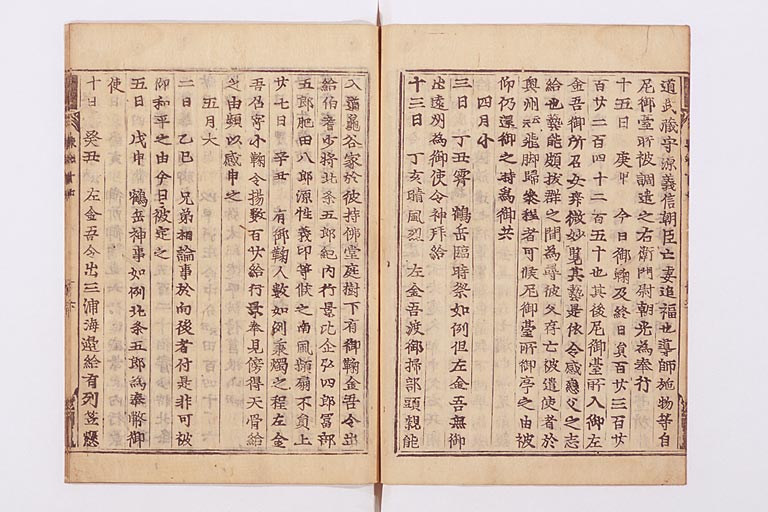 道武蔵守源義信朝臣亡妻追福也導師施物等自
尼御臺所被調遣之右衛門尉朝光為奉行
十五日 庚申 今日御鞠及終日員百廿三百廿
百廿二百四十二百五十也其後尼御臺所入御左
金吾御所召女舞微妙覧其藝是依令感戀父之志
給也藝能頗抜群之間為尋彼父存亡被遣使者於
奥州云龍脚歸参程者可候尼御臺所御亭之由被
仰仍還御之時為御共
四月小
三日 丁丑霽 鶴岳臨時祭如例但左金吾無御
出遠州為御使令神拜給
十三日 丁亥晴風烈 左金吾渡御掃部頭親能
入道龜谷家於彼持佛堂庭樹下有御鞠金吾令出
給伯耆少将北条五郎紀内行景比企弥四郎冨部
五郎肥田八郎源性義印等候之南風頻扇不員上
廿七日 辛丑 有御鞠人數如例秉燭之程左金
吾召寄小鞠令揚數百廿給行景奉見傍得天骨給
之由頻以感申之
五月大
二日 乙巳 兄弟相論事於向後者付是非可被
仰和平之由今日被定之
五日 戊申 鶴岳神事如例北条五郎為奉幣御
使
十日 癸丑 左金吾令出三浦海邉給有列笠懸